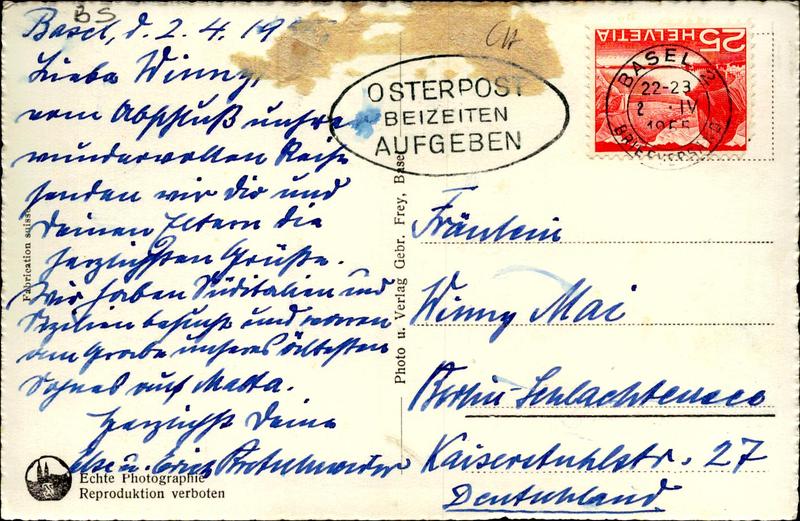 BS
Basel, d. 2.4.19
Liebe Winny,
vom Abschluß unsrer
wundervollen Reise
senden wir Dir und
Deinen Eltern die
herzlichsten Grüße.
Wir haben Süditalien und
Sizilien besucht und waren
am Grabe unseres ältesten
Sohnes auf Malta.
Herzlichst Deine
Else u. Erich
Fabrication suisse
Echte Photographie
Reproduktion verboten
Photo u. Verlag Gebr. Frey, Basel
OSTERPOST
BEIZEITEN
AUFGEBEN
25 HELVETIA
BASEL 2
22-23
2. IV
1955
BRIEFVERSAND
Fräulein
Winny Mai
Berlin-Schlachtensee
Kaiserstuhlstr. 27
Deutschland